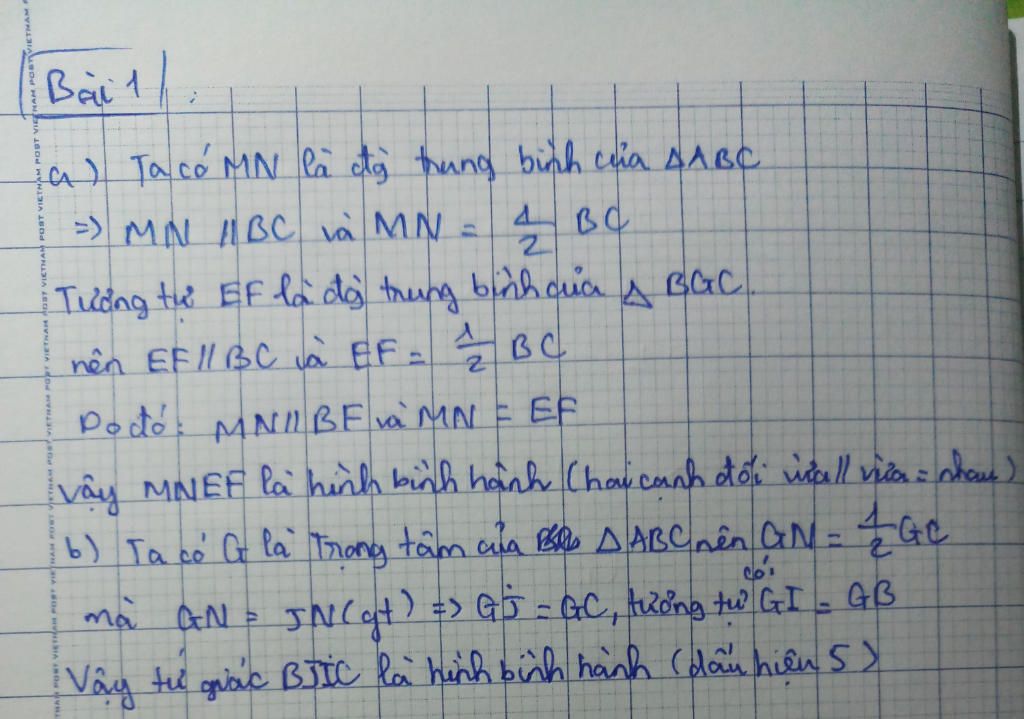 VIETNAM POST VIETNAM POST VIETNAM POST VIETNAM POST VIETNAM POST
Bài 1 :
a) Ta có MN là đg̀ trung bình của ΔABC
=> MN // BC và MN = 1/2 BC
Tương tự EF là đg̀ trung bình của Δ BGC.
nên EF // BC và EF = 1/2 BC
Do đó: MN // BF và MN = EF
Vậy MNEF là hình bình hành (hai cạnh đối vừa // vừa = nhau)
b) Ta có G là Trọng tâm của ΔABC nên GN = 1/2 GC
mà GN = JN (gt) => GJ = GC, tương tự có: GI = GB
Vậy tứ giác BJIC là hình bình hành (dấu hiệu 5)